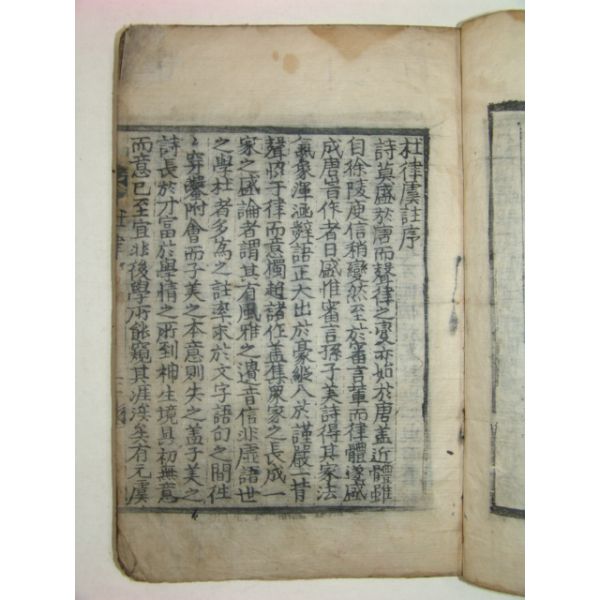 杜律虞註序
詩莫盛於唐而聲律之變亦始於唐盖近體雖
自徐陵庾信稍變然至於審言軰而律體遂盛
成唐旨作者日盛惟審言孫子美詩得其家法
氣象渾涵辭語正大出於豪縱入於謹嚴一昔
聲恊于律而意獨超諸作盖集衆家之長成一
家之盛論者謂其有風雅之遺音信非虛語世
之學杜者多為之註率求於文字語句之間徃
〻穿鑿附會而子美之本意則失之盖子美之
詩長於才富於學情之所到神生境具初無意
而意已至宜非後學所能窺其涯涘矣有元虞
杜律